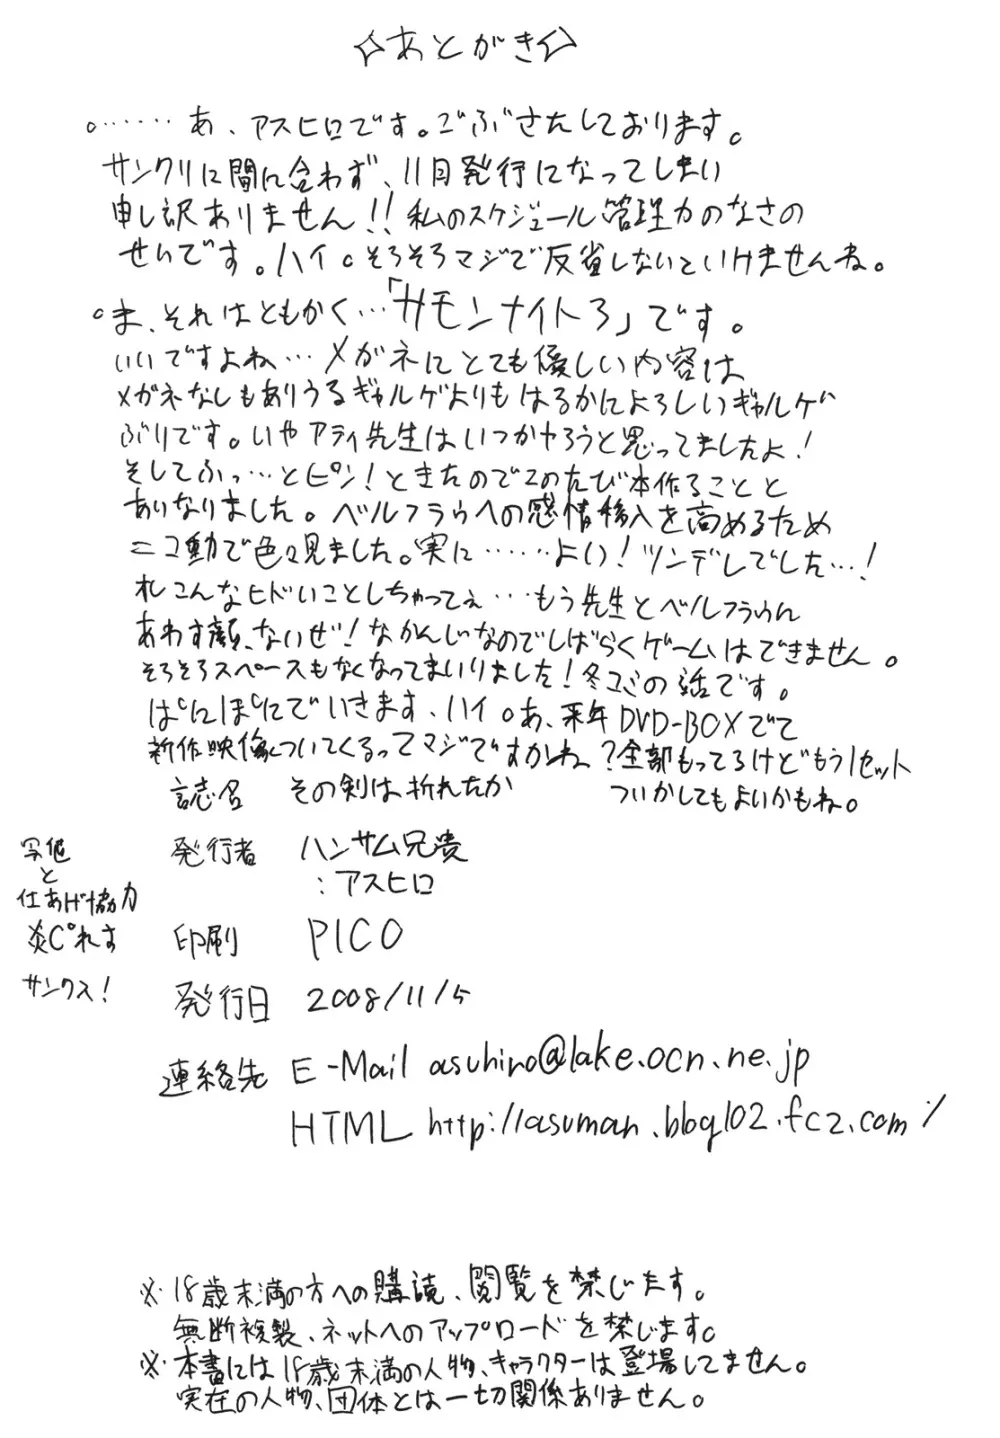 ☆あとがき☆
○……あ、アスヒロです。ごぶさたしております。
サンクリに間に合わず、11月発行になってしまい
申し訳ありません!!私のスケジュール管理力のなさの
せいです。ハイ。そろそろマジで反省しないといけませんね。
○ま、それはともかく…「サモンナイト3」です。
いいですよね…メガネにとても優しい内容は
メガネなしもありうるギャルゲよりもはるかによろしいギャルゲ
ぶりです。いやアティ先生はいつかやろうと思ってましたよ!
そしてふっ…とピン!ときたのでこのたび本作ることと
あいなりました。ベルフラウへの感情移入を高めるため
ニコ動で色々見ました。実に……よい!ツンデレでした…!
れこんなヒドいことしちゃってぇ…もう先生とベルフラウに
あわす顔、ないぜ!なかんじなのでしばらくゲームはできません。
そろそろスペースもなくなってまいりました!冬コミの話です。
ぱにぽにでいきます、ハイ。あ、来年DVD-BOXでて
新作映像ついてくるってマジですかね?全部もってるけどもう1セット
ついかしてもよいかもね。
誌名 その剣は折れたか
発行者 ハンサム兄貴
:アスヒロ
写植
と
仕あげ協力
炎ぴれす
サンクス!
印刷 PICO
発行日 2008/11/5
連絡先 E-Mail asuhiro@lake.ocn.ne.jp
HTML http://asuman.blog102.fc2.com/
※18歳未満の方への購読、閲覧を禁じます。
無断複製、ネットへのアップロードを禁じます。
※本書には18歳未満の人物、キャラクターは登場してません。
実在の人物、団体とは一切関係ありません。